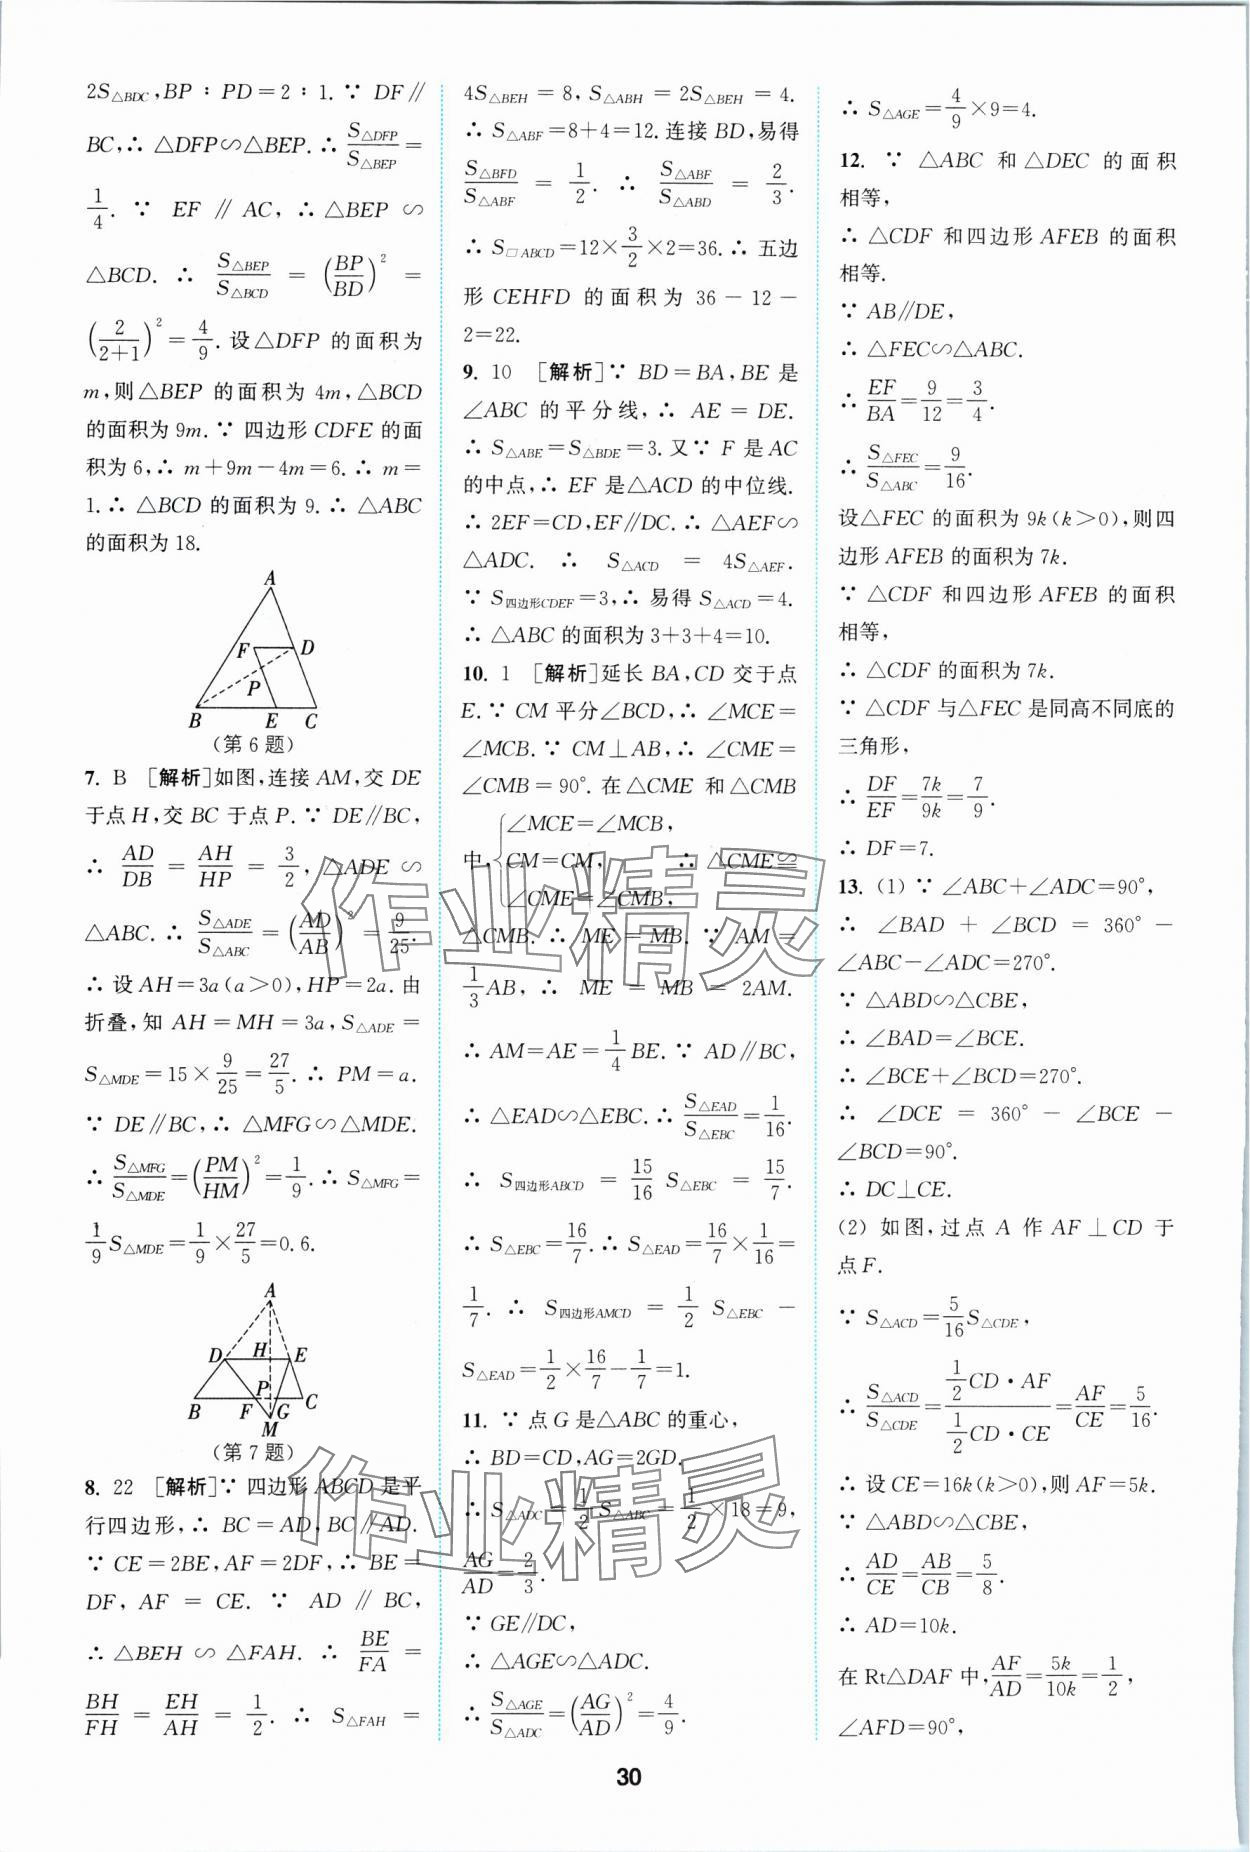 2S△BDC,BP∶PD=2∶1.∵ DF∥
BC,∴ △DFP∽△BEP.∴ S△DFP/S△BEP=
1/4. ∵ EF∥AC, ∴ △BEP∽
△BCD. ∴ S△BEP/S△BCD = (BP/BD)² =
(2/(2+1))²=4/9.设△DFP 的面积为
m,则△BEP 的面积为 4m,△BCD
的面积为9m.∵ 四边形CDFE的面
积为6,∴ m+9m-4m=6.∴ m=
1.∴ △BCD 的面积为9.∴ △ABC
的面积为18.
A
F D
P
B E C
(第6题)
7. B [解析]如图,连接AM,交DE
于点H,交BC于点P.∵ DE∥BC,
∴ AD/DB = AH/HP = 3/2, △ADE ∽
△ABC.∴ S△ADE/S△ABC=(AD/AB)²=9/25.
∴ 设AH=3a(a>0),HP=2a.由
折叠,知AH=MH=3a,S△ADE=
S△MDE=15×9/25=27/5.∴ PM=a.
∵ DE∥BC,∴ △MFG∽△MDE.
∴ S△MFG/S△MDE=(PM/HM)²=1/9.∴ S△MFG=
1/9S△MDE=1/9×27/5=0.6.
A
D H E
P
B F G C
M
(第7题)
8. 22 [解析]∵ 四边形ABCD是平
行四边形,∴ BC=AD,BC∥AD.
∵ CE=2BE,AF=2DF,∴ BE=
DF, AF = CE. ∵ AD∥BC,
∴ △BEH ∽ △FAH. ∴ BE/FA =
BH/FH = EH/AH = 1/2. ∴ S△FAH =
4S△BEH = 8, S△ABH = 2S△BEH = 4.
∴ S△ABF=8+4=12.连接BD,易得
S△BFD/S△ABF = 1/2. ∴ S△ABF/S△ABD = 2/3.
∴ S□ABCD=12×3/2×2=36.∴ 五边
形CEHFD 的面积为 36 - 12 -
2=22.
9. 10 [解析]∵ BD=BA,BE是
∠ABC 的平分线,∴ AE=DE.
∴ S△ABE=S△BDE=3.又∵ F是AC
的中点,∴ EF是△ACD的中位线.
∴ 2EF=CD,EF∥DC.∴ △AEF∽
△ADC. ∴ S△ACD = 4S△AEF.
∵ S四边形CDEF=3,∴ 易得S△ACD=4.
∴ △ABC的面积为3+3+4=10.
10. 1 [解析]延长BA,CD交于点
E.∵ CM平分∠BCD,∴ ∠MCE=
∠MCB.∵ CM⊥AB,∴ ∠CME=
∠CMB=90°.在△CME 和△CMB
∠MCE=∠MCB,
中, CM=CM, ∴ △CME≌
∠CME=∠CMB,
△CMB.∴ ME=MB.∵ AM=
1/3AB, ∴ ME = MB = 2AM.
∴ AM=AE=1/4BE.∵ AD∥BC,
∴ △EAD∽△EBC.∴ S△EAD/S△EBC=1/16.
∴ S四边形ABCD = 15/16 S△EBC = 15/7.
∴ S△EBC=16/7.∴ S△EAD=16/7×1/16=
1/7. ∴ S四边形AMCD = 1/2 S△EBC -
S△EAD=1/2×16/7-1/7=1.
11. ∵ 点G是△ABC的重心,
∴ BD=CD,AG=2GD.
∴ S△ADC=1/2S△ABC=1/2×18=9,
AG/AD=2/3.
∵ GE∥DC,
∴ △AGE∽△ADC.
∴ S△AGE/S△ADC=(AG/AD)²=4/9.
∴ S△AGE=4/9×9=4.
12. ∵ △ABC 和△DEC 的面积
相等,
∴ △CDF 和四边形AFEB 的面积
相等.
∵ AB∥DE,
∴ △FEC∽△ABC.
∴ EF/BA=9/12=3/4.
∴ S△FEC/S△ABC=9/16.
设△FEC的面积为9k(k>0),则四
边形AFEB的面积为7k.
∵ △CDF 和四边形AFEB的面积
相等,
∴ △CDF的面积为7k.
∵ △CDF与△FEC是同高不同底的
三角形,
∴ DF/EF=7k/9k=7/9.
∴ DF=7.
13. (1) ∵ ∠ABC+∠ADC=90°,
∴ ∠BAD + ∠BCD = 360° -
∠ABC-∠ADC=270°.
∵ △ABD∽△CBE,
∴ ∠BAD=∠BCE.
∴ ∠BCE+∠BCD=270°.
∴ ∠DCE = 360° - ∠BCE -
∠BCD=90°.
∴ DC⊥CE.
(2) 如图,过点A作AF⊥CD于
点F.
∵ S△ACD=5/16S△CDE,
∴ S△ACD/S△CDE=(1/2CD·AF)/(1/2CD·CE)=AF/CE=5/16.
∴ 设CE=16k(k>0),则AF=5k.
∵ △ABD∽△CBE,
∴ AD/CE=AB/CB=5/8.
∴ AD=10k.
在Rt△DAF中,AF/AD=5k/10k=1/2,
∠AFD=90°,
作业精灵
作业精灵
30